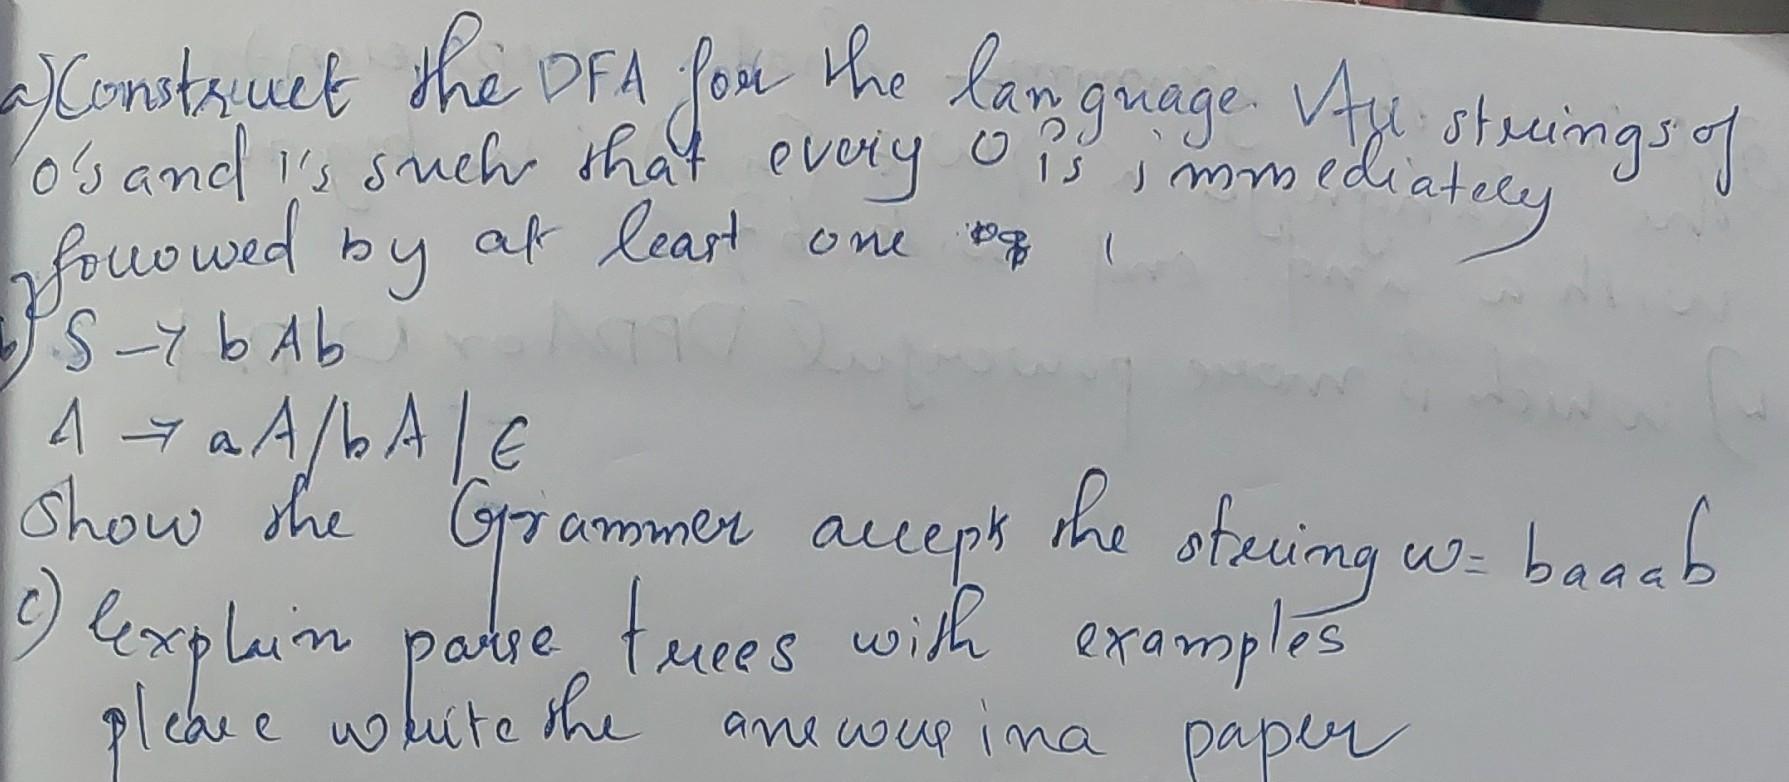 a) Construct the DFA for the language. All strings of
0's and 1's such that every 0 is immediately
followed by at least one 1
b) S → bAb
A → aA/bA | ϵ
Show the Grammer accept the string w= baaab
c) explain parse trees with examples
please write the answer in a paper